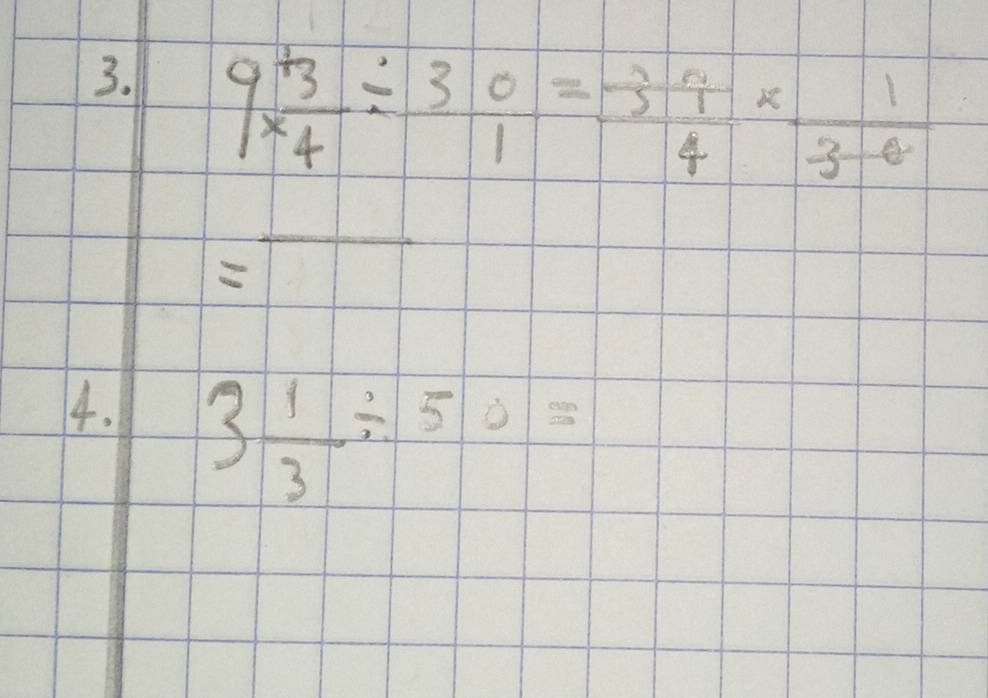 3. 9 + 3/4 ÷ 30/1 = 39/4 × 1/30
×
=
4. 3 1/3 ÷ 50 =